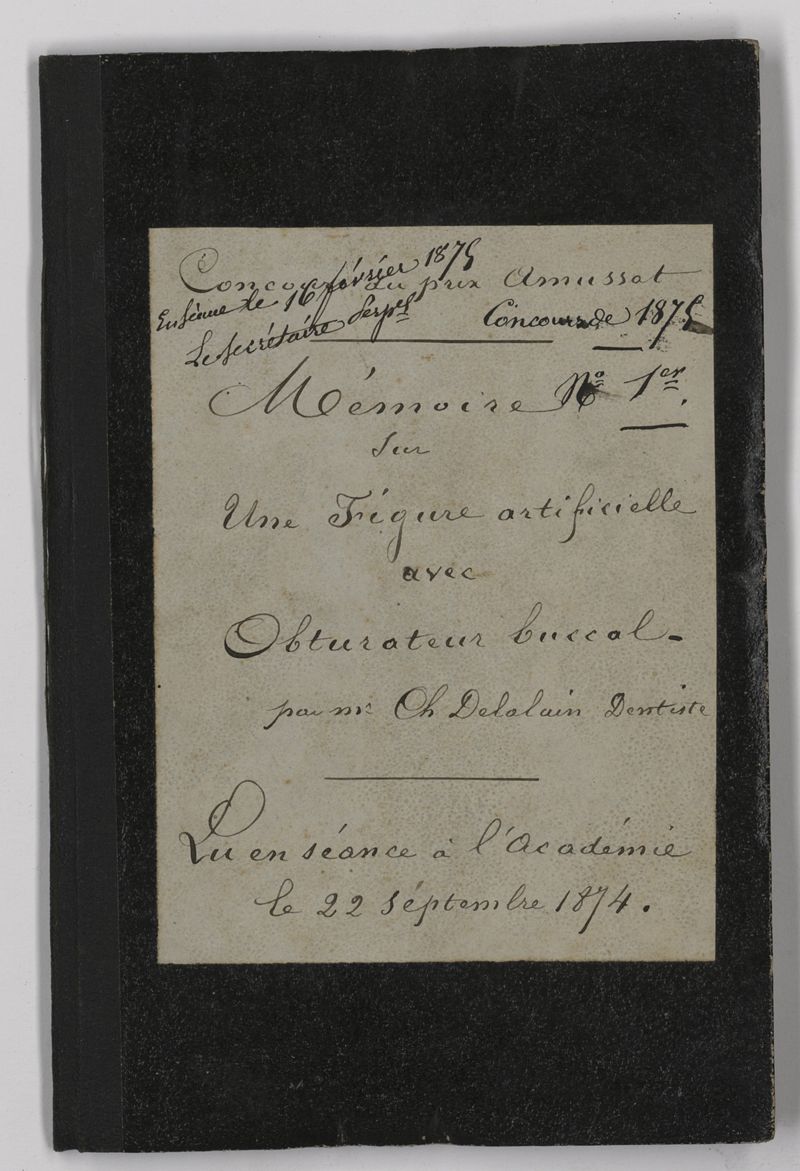 Concours du prix Amussat
En séance le 16 février 1875
Le Secrétaire Perpel
Concours de 1875
Mémoire No 1er.
Sur
Une Figure artificielle
avec
Obturateur buccal -
par mr Ch Delalain Dentiste
Lu en séance à l'Académie
le 22 Septembre 1874.